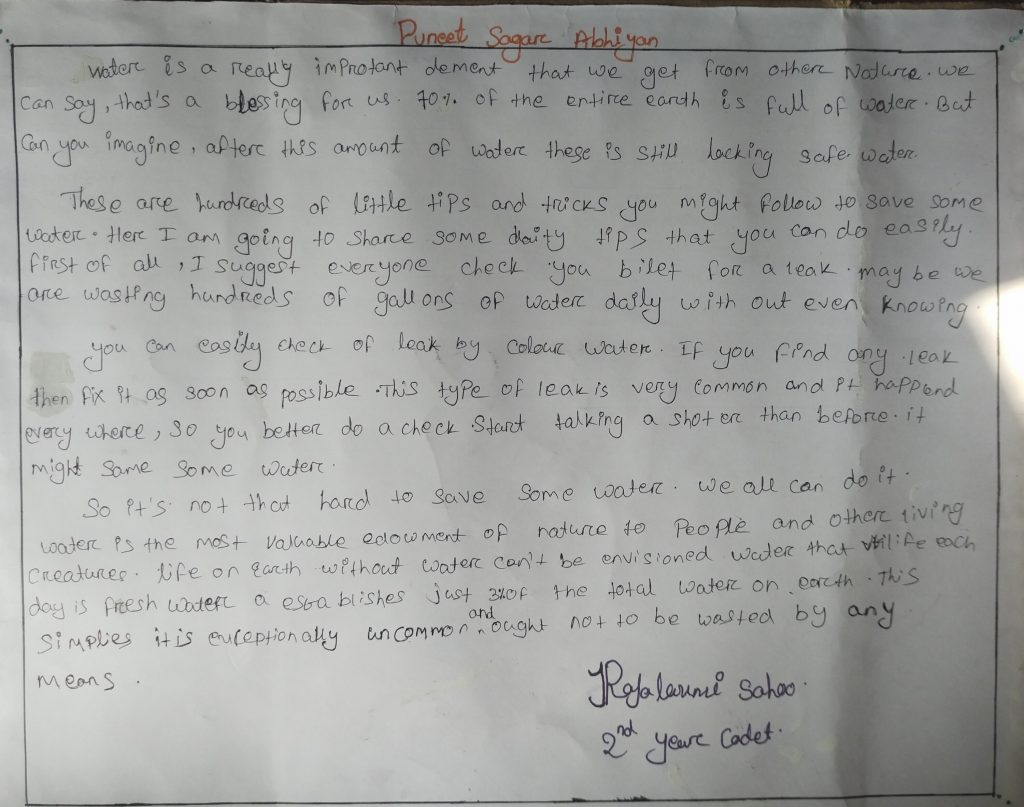 Puneet Sagar Abhiyan
water is a really improtant dement that we get from other Nature. we
can say, that's a blessing for us. 70% of the entire earth is full of water. But
Can you imagine, after this amount of water these is still lacking safe water.
These are hundreds of little tips and tricks you might follow to save some
water. Here I am going to share some daity tips that you can do easily.
first of all, I suggest everyone check you bilet for a leak. may be we
are wasting hundreds of gallons of water daily with out even knowing.
you can easily check of leak by colour water. If you find any leak
then fix it as soon as possible. This type of leak is very common and it happend
every where, so you better do a check. Start talking a shoter than before. it
might same some water.
So it's not that hard to save some water. we all can do it.
water is the most valuable edowment of nature to People and other living
creatures. life on Earth without water can't be envisioned water that utilife each
day is fresh water a establishes just 3% of the total water on earth. This
simplies it is enceptionally uncommon and ought not to be wasted by any
means.
Sahoo
2nd year Cadet.